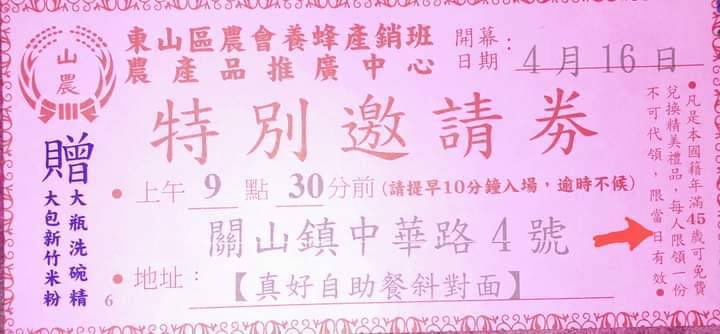 山農
東山區農會養蜂產銷班
農產品推廣中心
開幕日期：4月16日
特別邀請券
贈
大瓶洗碗精
大包新竹米粉
●上午9點30分前(請提早10分鐘入場，逾時不候)
關山鎮中華路4號
●地址：【真好自助餐斜對面】
6
●凡是本國籍年滿45歲可免費
兌換精美禮品，每人限領一份
不可代領，限當日有效●